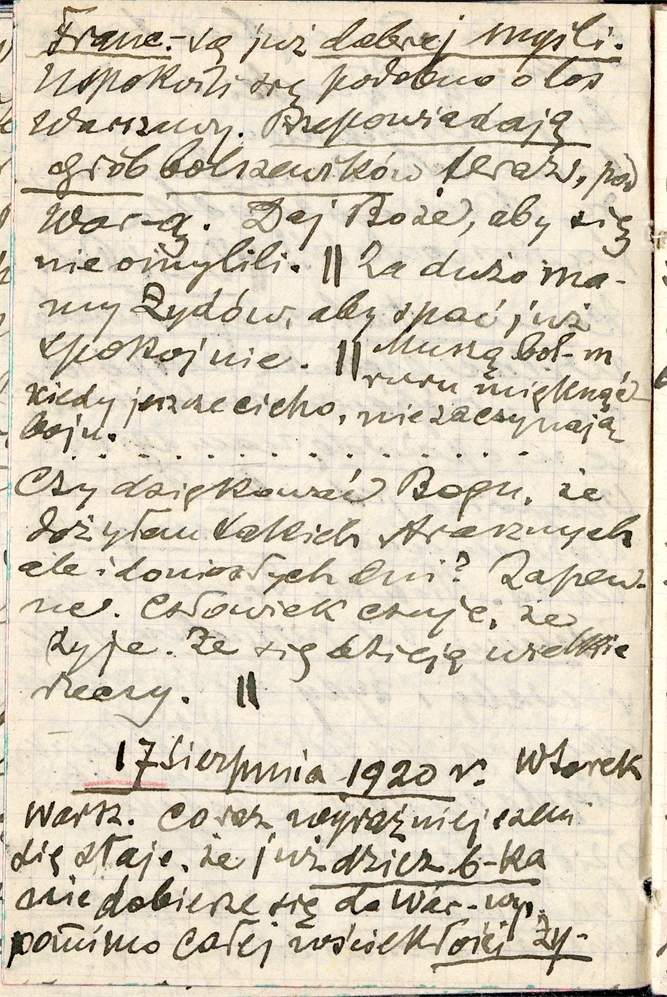 Franc.-są już dobrej myśli.
Uspokoili się podobno o los
Warszawy. Przepowiadają
grób bolszewików teraz, pod
War-ą. Daj Boże, aby się
nie omylili. || Za dużo ma-
my Żydów, aby spać już
spokojnie. || Muszą bol-m
rury mięknąć
kiedy jeszcze cicho, nie zaczynają
boju.
. . . . . . . . . . . . . .
Czy dziękować Bogu, że
dożyłam takich strasznych
ale i doniosłych dni? Zapew-
ne. Człowiek czuje, że
żyje. Że się dzieją wielkie
rzeczy. ||
17 Sierpnia 1920 r. Wtorek
Wark. Coraz wyraźniejszem
się staje, że już dzicz b-ka
nie dobierze się do War-wy,
pomimo całej wściekłości Ży-